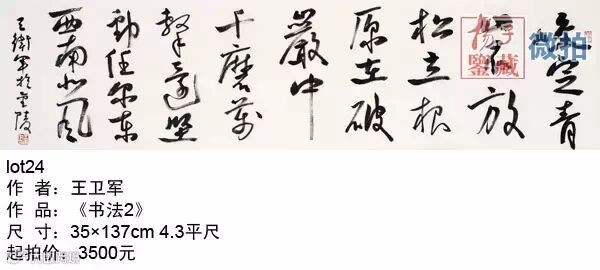 咬定青
山不放
松立根
原在破
嚴中
千磨萬
擊還堅
勁任尔東
西南北風
王衛軍於金陵
微拍
鑒藏
lot24
作 者：王卫军
作 品：《书法2》
尺 寸：35×137cm 4.3平尺
起拍价：3500元